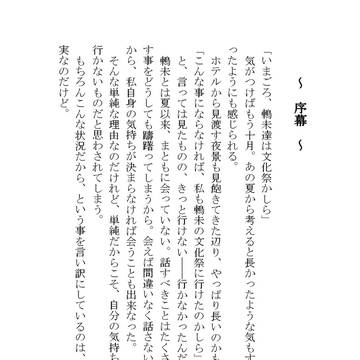 ～ 序幕 ～
「いまごろ、鶫未達は文化祭かしら」
気がつけばもう十月。あの夏から考えると長かったような気もす
ったようにも感じられる。
ホテルから見渡す夜景も見飽きてきた辺り、やっぱり長いのかも
「こんな事にならなければ、私も鶫未の文化祭に行けたのかしら」
と、言っては見たものの、きっと行けない――行かなかったんだ
鶫未とは夏以来、まともに会っていない。話すべきことはたくさ
す事をどうしても躊躇ってしまうから。会えば間違いなく話さない
から、私自身の気持ちが決まらなければ会うことも出来なった。
そんな単純な理由なのだけれど、単純だからこそ、自分の気持ち
行かないものだと思わされてしまう。
もちろんこんな状況だから、という事を言い訳にしているのは、
実なのだけど。